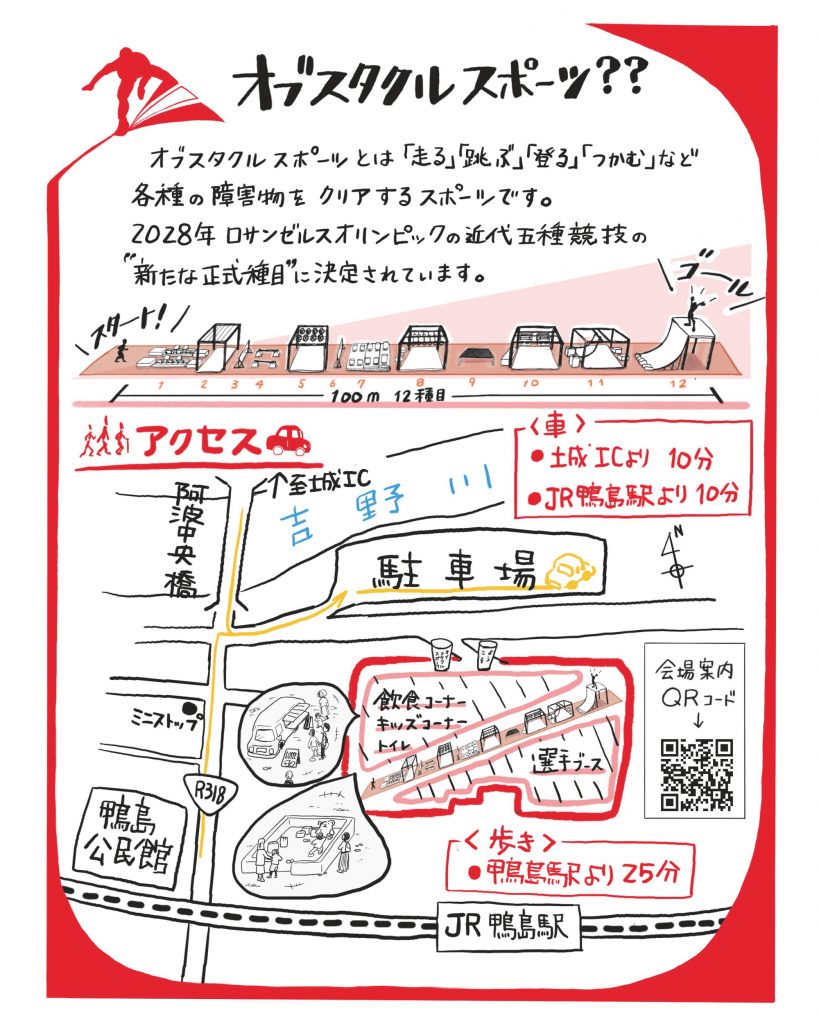 オブスタクルスポーツ??
オブスタクルスポーツとは「走る」「跳ぶ」「登る」「つかむ」など
各種の障害物をクリアするスポーツです。
2028年ロサンゼルスオリンピックの近代五種競技の
"新たな正式種目"に決定されています。
スタート!
ゴール
1 2 3 4 5 6 7 8 9 10 11 12
100m 12種目
アクセス
〈車〉
●土成ICより 10分
●JR鴨島駅より10分
↑至土成IC
吉野川
阿波中央橋
駐車場
N
ミニストップ
飲食コーナー
キッズコーナー
トイレ
選手ブース
会場案内
QRコード
↓
R318
鴨島
公民館
〈歩き〉
●鴨島駅より25分
JR鴨島駅